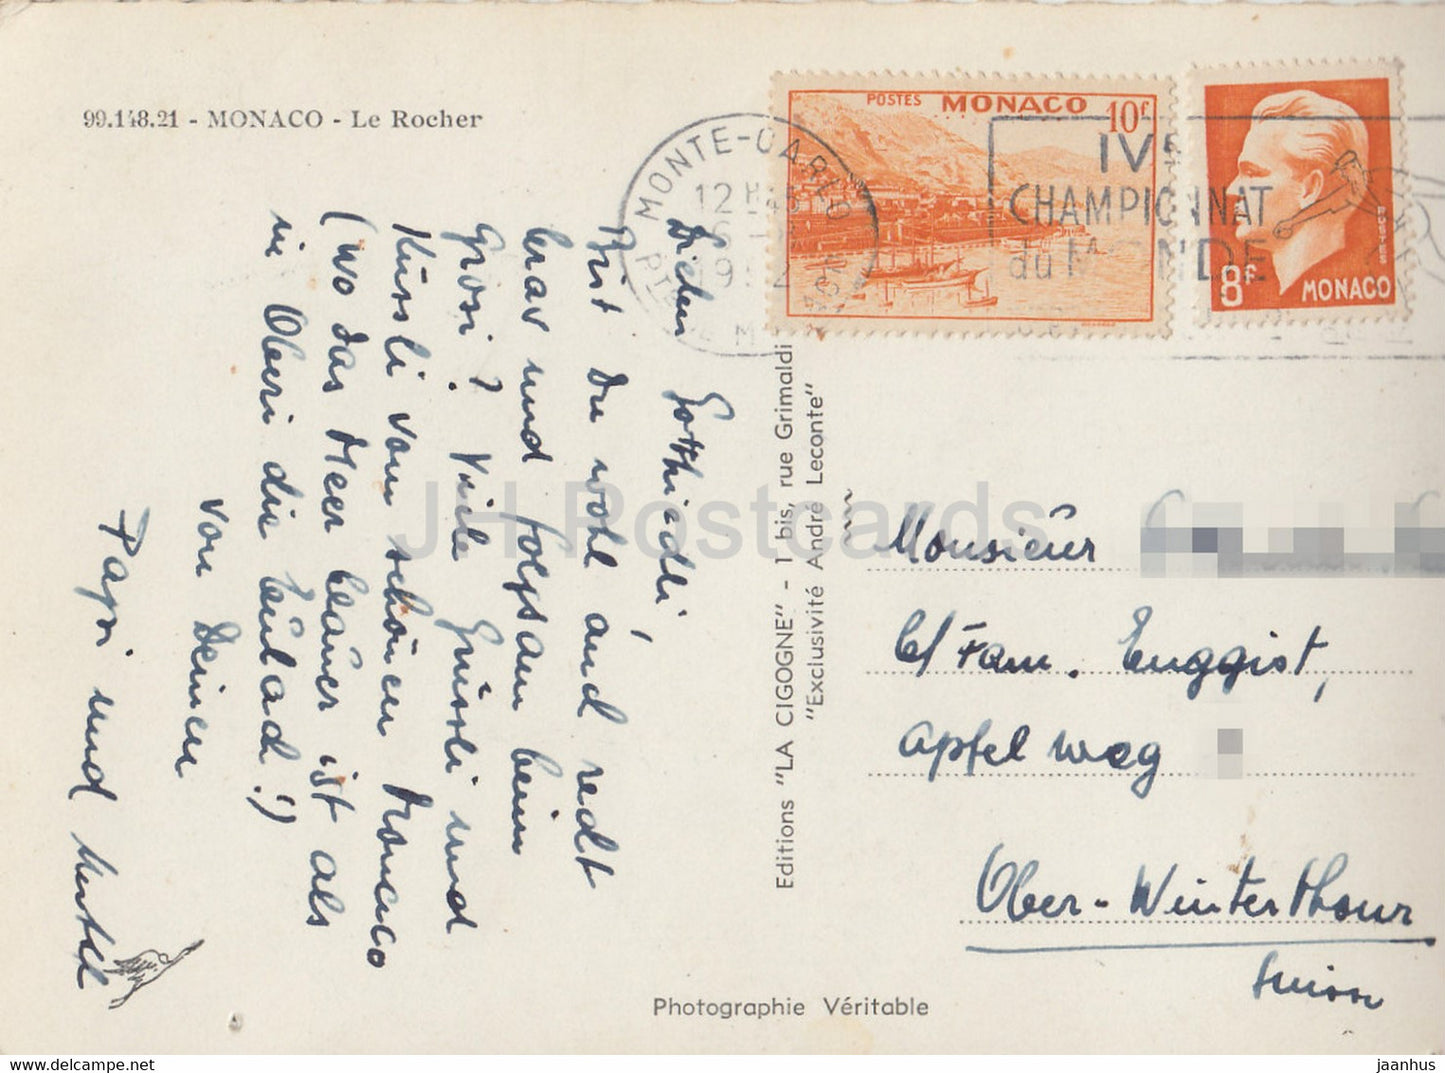 99.148.21 - MONACO - Le Rocher
MONTE-CARLO
12 H 45
POSTES MONACO 10f
IVe
CHAMPIONNAT
du MONDE
8f MONACO
Lieber Gotthiedli,
Bist Du wohl and redt
brav und folgsam beim
Grosi? Viele Grüssli und
Küssli vom schönen Monaco
(wo das Meer blauer ist als
in Oberi die Eulach!)
von Deinem
Papi und Mutti
Editions "LA CIGOGNE" - 1 bis, rue Grimaldi
"Exclusivité André Leconte"
Monsieur
c/ Fam. Zuggist,
Apfelweg
Ober-Winterthour
Suisse
Photographie Véritable
JH Postcards
www.delcampe.net
jaanhus